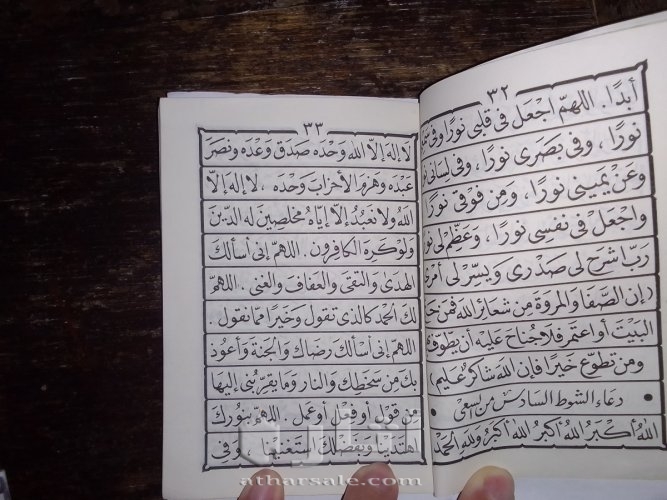 ٣٢
أبدًا. اللهمّ اجْعَل فى قلبى نورًا وفى
نورًا، وفى بَصَرى نورًا، وفى لِسانى
وعَنْ يَمينى نورًا، ومِن فوقى نورًا
واجْعَل فى نفسى نورًا، وَعَظِّم لى
رَبّ اشْرَح لى صَدْرى وَيَسِّر لى
(إن الصَّفا والمروة مِن شعائر الله فَمَن
البَيْتَ أو اعتمر فلا جُناح عَليْه أن يطَّوف
ومن تطوّع خيرًا فإن الله شاكر عَليم)
• دعاء الشوط السادس من السعى •
اللهُ أكْبَرُ اللهُ أكبرُ اللهُ أكبرُ ولله الحمدُ
٣٣
لا إله إلّا الله وَحْدَه صَدَق وَعْدَه ونَصَرَ
عَبْدَه وهَزَمَ الأحْزابَ وَحْدَه، لا إله إلّا
اللهُ ولا نعبُدُ إلّا إيّاه مُخلِصِين لَه الدّينَ
ولو كَرِهَ الكافرون. اللهمّ إنى أسألك
الهدَى والتقى والعَفافَ والغنى. اللهمّ
لكَ الحمْدُ كالذى تقول وَخَيرًا ممّا نقول.
اللهمّ إنى أسألك رضاكَ وَالجَنة وَأعوذ
بكَ مِن سَخَطِكَ والنار ومَا يُقرّبُنى إليها
مِن قولٍ أو فِعْلٍ أو عَمَل. اللهمّ بنورك
اهتدَينا وبفَضْلكَ استَغنَينا، وَفى
أثاريت
atharsale.com